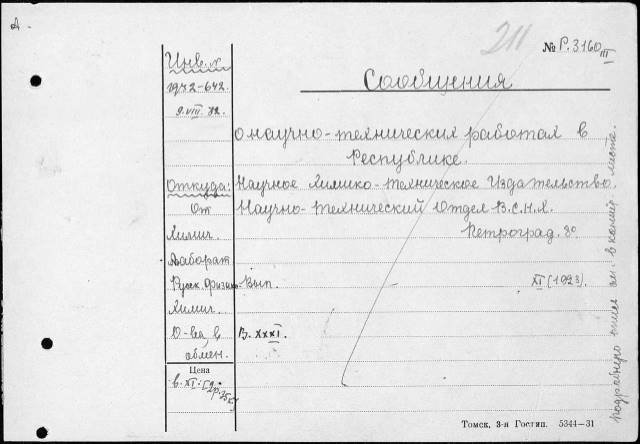 А.
211
№ Р.3160 III
Инв. №
1972-642.
9.VIII.32.
Сообщения
о научно-технических работах в
Республике.
Откуда:
От
Химич.
Лаборат
Русск. Физико-
Химич.
О-ва, в
обмен.
Научное Химико-техническое Издательство.
Научно-технический Отдел В.С.Н.Х.
Петроград. 8°
Вып.
XI (1923).
В. XXXI.
Цена
в. XI: [2р.25к]
подробную опись см. в копии листа.
Томск, 3-я Гостип. 5344—31